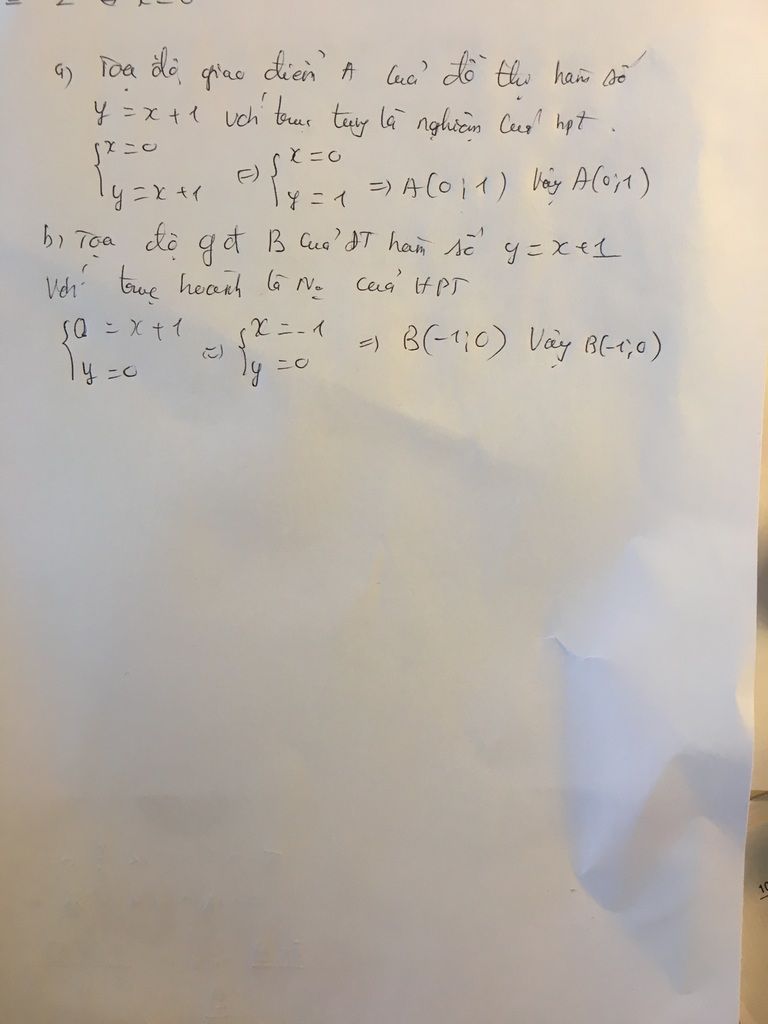 a) Toạ độ giao điểm A của đồ thị hàm số
y = x + 1 với trục tung là nghiệm của hpt.
{x = 0 y = x + 1 <=> {x = 0 y = 1 => A(0;1) Vậy A(0;1)
b) Toạ độ gđ B của ĐT hàm số y = x + 1
Với trục hoành là No của HPT
{0 = x + 1 y = 0 <=> {x = -1 y = 0 => B(-1;0) Vậy B(-1;0)